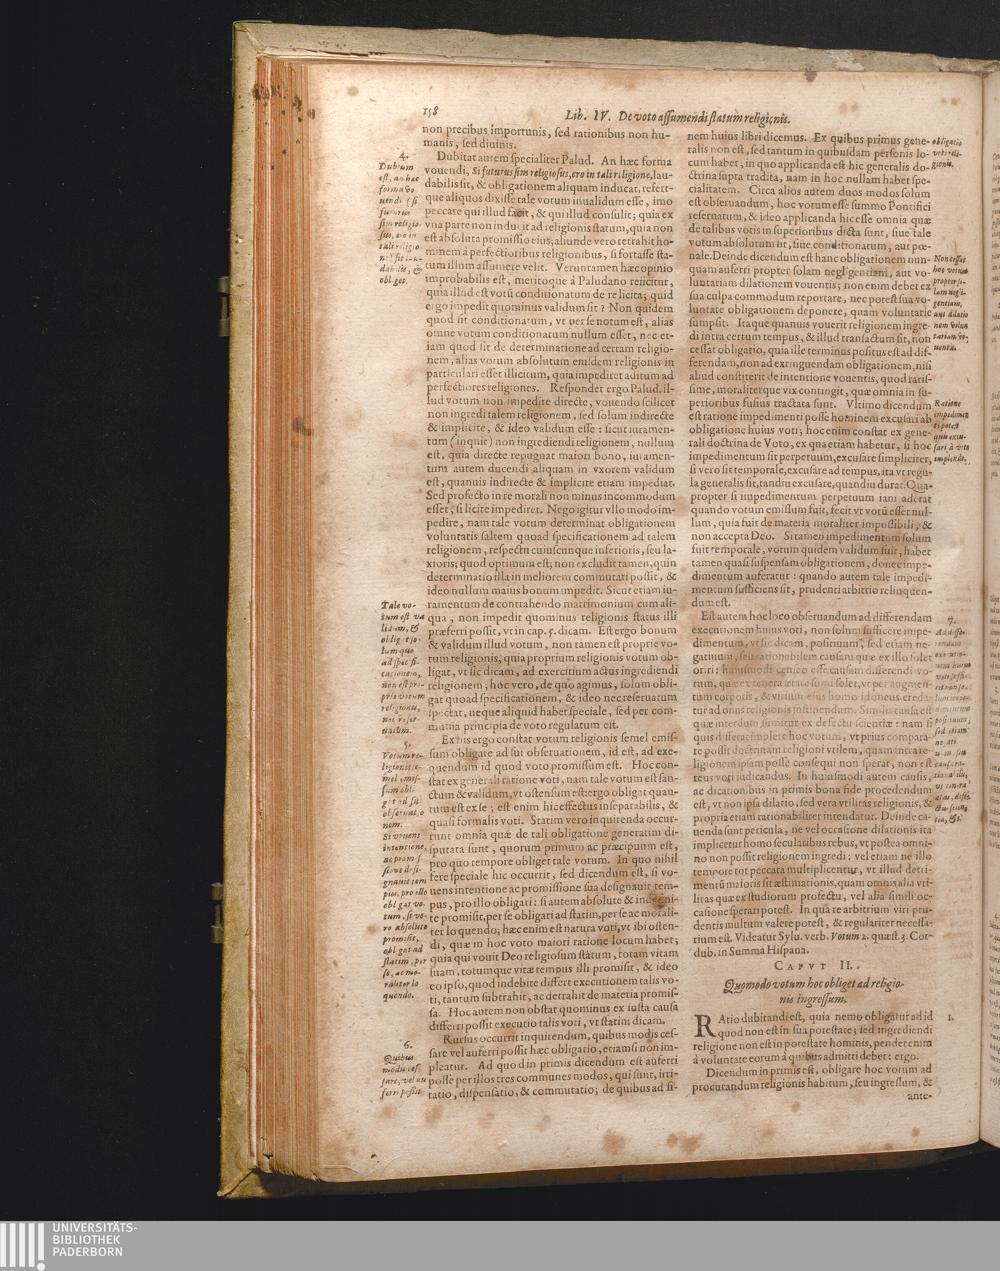 158
Lib. IV. De voto assumendi statum religionis.
non precibus importunis, sed rationibus non hu-
manis, sed diuinis.
4.
Dubium
est, an hæc
forma vo
uendi (si
futurus
sim religio-
sus, ero in
tali religio
ne) sit lau-
dabilis, &
obliget.
Dubitat autem specialiter Palud. An hæc forma
vouendi, Si futurus sim religiosus, ero in tali religione, lau-
dabilis sit, & obligationem aliquam inducat, refert-
que aliquos dixisse tale votum inualidum esse, imo
peccare qui illud facit, & qui illud consulit; quia ex
vna parte non inducit ad religionis statum, quia non
est absoluta promissio eius, aliunde vero retrahit ho-
minem à perfectioribus religionibus, si fortasse sta-
tum illum assumere velit. Veruntamen hæc opinio
improbabilis est, meritoque à Paludano reiicitur,
quia illud est votū conditionatum de re licita; quid
ergo impedit quominus validum sit? Non quidem
quod sit conditionatum, vt per se notum est, alias
omne votum conditionatum nullum esset, nec et-
iam quod sit de determinatione ad certam religio-
nem, alias votum absolutum eiusdem religionis in
particulari esset illicitum, quia impediret aditum ad
perfectiores religiones. Respondet ergo Palud. il-
lud votum non impedire directe, vouendo scilicet
non ingredi talem religionem, sed solum indirecte
& implicite, & ideo validum esse: sicut iuramen-
tum (inquit) non ingrediendi religionem, nullum
est, quia directe repugnat maiori bono, iuramen-
tum autem ducendi aliquam in vxorem validum
est, quamuis indirecte & implicite etiam impediat.
Sed profecto in re morali non minus incommodum
esset, si licite impediret. Nego igitur vllo modo im-
pedire, nam tale votum determinat obligationem
voluntatis saltem quoad specificationem ad talem
religionem, respectu cuiuscunque inferioris, seu la-
xioris; quod optimum est; non excludit tamen, quin
determinatio illa in meliorem commutari possit, &
ideo nullum maius bonum impedit. Sicut etiam iu-
Tale vo-
tum est va
lidum, &
obligat so-
lum quo
ad speci fi-
cationem,
non est pro-
prie votum
religionis,
nec reser-
uatum.
ramentum de contrahendo matrimonium cum ali-
qua, non impedit quominus religionis status illi
præferri possit, vt in cap. 5. dicam. Est ergo bonum
& validum illud votum, non tamen est proprie vo-
tum religionis, quia proprium religionis votum ob-
ligat, vt sic dicam, ad exercitium actus ingrediendi
religionem, hoc vero, de quo agimus, solum obli-
gat quoad specificationem, & ideo nec reseruatum
spectat, neque aliquid habet speciale, sed per com-
munia principia de voto regulatum est.
5.
Votum re-
ligionis se-
mel emis-
sum obli-
gat ad sui
obseruatio
nem.
Si vouens
intentione,
ac promis-
sione desi-
gnauit tem
pus, pro illo
obligat vo-
tum, si ve-
ro absolute
promisit,
obligat ad
statim, per
se, ac mo-
raliter lo
quendo.
Ex his ergo constat votum religionis semel emis-
sum obligare ad sui obseruationem, id est, ad exe-
quendum id quod voto promissum est. Hoc con-
stat ex generali ratione voti, nam tale votum est san-
ctum & validum, vt ostensum est: ergo obligat quan-
tum est ex se; est enim hic effectus inseparabilis, &
quasi formalis voti. Statim vero inquirenda occur-
runt omnia quæ de tali obligatione generatim di-
sputata sunt, quorum primum ac præcipuum est,
pro quo tempore obliget tale votum. In quo nihil
fere speciale hic occurrit, sed dicendum est, si vo-
uens intentione ac promissione sua designauit tem-
pus, pro illo obligari: si autem absolute & indefini-
te promisit, per se obligari ad statim, per se ac morali-
ter loquendo; hæc enim est natura voti, vt ibi osten-
di, quæ in hoc voto maiori ratione locum habet;
quia qui vouit Deo religiosum statum, totam vitam
suam, totumque vitæ tempus illi promisit, & ideo
eo ipso, quod indebite differt executionem talis vo-
ti, tantum subtrahit, ac detrahit de materia promis-
sa. Hoc autem non obstat quominus ex iusta causa
differri possit executio talis voti, vt statim dicam.
6.
Quibus
modis ces-
sare, vel au
ferri possit
Rursus occurrit inquirendum, quibus modis ces-
sare vel auferri possit hæc obligatio, etiamsi non im-
pleatur. Ad quod in primis dicendum est auferri
posse per illos tres communes modos, qui sunt, irri-
tatio, dispensatio, & commutatio; de quibus ad fi-
nem huius libri dicemus. Ex quibus primus gene-
ralis non est, sed tantum in quibusdam personis lo-
cum habet, in quo applicanda est hic generalis do-
ctrina supra tradita, nam in hoc nullam habet spe-
cialitatem. Circa alios autem duos modos solum
est obseruandum, hoc votum esse summo Pontifici
reseruatum, & ideo applicanda hic esse omnia quæ
de talibus votis in superioribus dicta sunt, siue tale
votum absolutum sit, siue conditionatum, aut pœ-
nale. Deinde dicendum est hanc obligationem nun-
quam auferri propter solam negligentiam, aut vo-
luntariam dilationem vouentis; non enim debet ex
sua culpa commodum reportare, nec potest sua vo-
luntate obligationem deponere, quam voluntarie
sumpsit. Itaque quamuis vouerit religionem ingre-
di intra certum tempus, & illud transactum sit, non
cessat obligatio, quia ille terminus positus est ad dif-
ferendam, non ad extinguendam obligationem, nisi
aliud constiterit de intentione vouentis, quod raris-
sime, moraliterque vix contingit, quæ omnia in su-
perioribus fusius tractata sunt. Vltimo dicendum
est ratione impedimenti posse hominem excusari ab
obligatione huius voti; hoc enim constat ex gene-
rali doctrina de Voto, ex qua etiam habetur, si hoc
impedimentum sit perpetuum, excusare simpliciter,
si vero sit temporale, excusare ad tempus, ita vt regu-
la generalis sit, tandiu excusare, quandiu durat. Qua-
propter si impedimentum perpetuum iam aderat
quando votum emissum fuit, fecit vt votū esset nul-
lum, quia fuit de materia moraliter impossibili, &
non accepta Deo. Si tamen impedimentum solum
fuit temporale, votum quidem validum fuit, habet
tamen quasi suspensam obligationem, donec impe-
dimentum auferatur: quando autem tale impedi-
mentum sufficiens sit, prudenti arbitrio relinquen-
dum est.
obligatio
voti reli-
gionis.
Non cessat
hoc votum
propter so-
lam negli-
gentiam,
aut dilatio
nem volun
tariam vo-
uentis.
Ratione
impedimen
ti potest
quis excu-
sari à voto
implendo.
Est autem hoc loco obseruandum ad differendam
executionem huius voti, non solum sufficere impe-
dimentum, vt sic dicam, positiuum, sed etiam ne-
gatiuum, seu rationabilem causam quæ ex illo solet
oriri: huiusmodi censeo esse causam differendi vo-
tum, quæ ex tenera ætate sumi solet, vt per augmen-
tum corporis, & virium eius homo idoneus creda-
tur ad onus religionis sustinendum. Similis causa est
quæ interdum sumitur ex defectu scientiæ: nam si
quis differat implere hoc votum, vt prius compara-
re possit doctrinam religioni vtilem, quam intra re-
ligionem ipsam posse consequi non sperat, non est
reus voti iudicandus. In huiusmodi autem causis,
ac dicationibus in primis bona fide procedendum
est, vt non ipsa dilatio, sed vera vtilitas religionis, &
propria etiam rationabiliter intendatur. Deinde ca-
uenda sunt pericula, ne vel occasione dilationis ita
implicetur homo secularibus rebus, vt postea omni-
no non possit religionem ingredi: vel etiam ne illo
tempore tot peccata multiplicentur, vt illud detri-
mentū maioris sit æstimationis, quam omnis alia vti-
litas quæ ex studiorum profectu, vel alia simili oc-
casione sperari potest. In qua re arbitrium viri pru-
dentis multum valere potest, & regulariter necessa-
rium est. Videatur Sylu. verb. Votum 2. quæst. 3. Cor-
dub. in Summa Hispana.
7.
CAPVT II.
Quomodo votum hoc obliget ad religio-
nis ingressum.
RAtio dubitandi est, quia nemo obligatur ad id
quod non est in sua potestate; sed ingrediendi
religione non est in potestate hominis, pendet enim
à voluntate eorum à quibus admitti debet: ergo.
1.
Dicendum in primis est, obligare hoc votum ad
procurandum religionis habitum, seu ingressum, &
ante-
UNIVERSITÄTS-
BIBLIOTHEK
PADERBORN